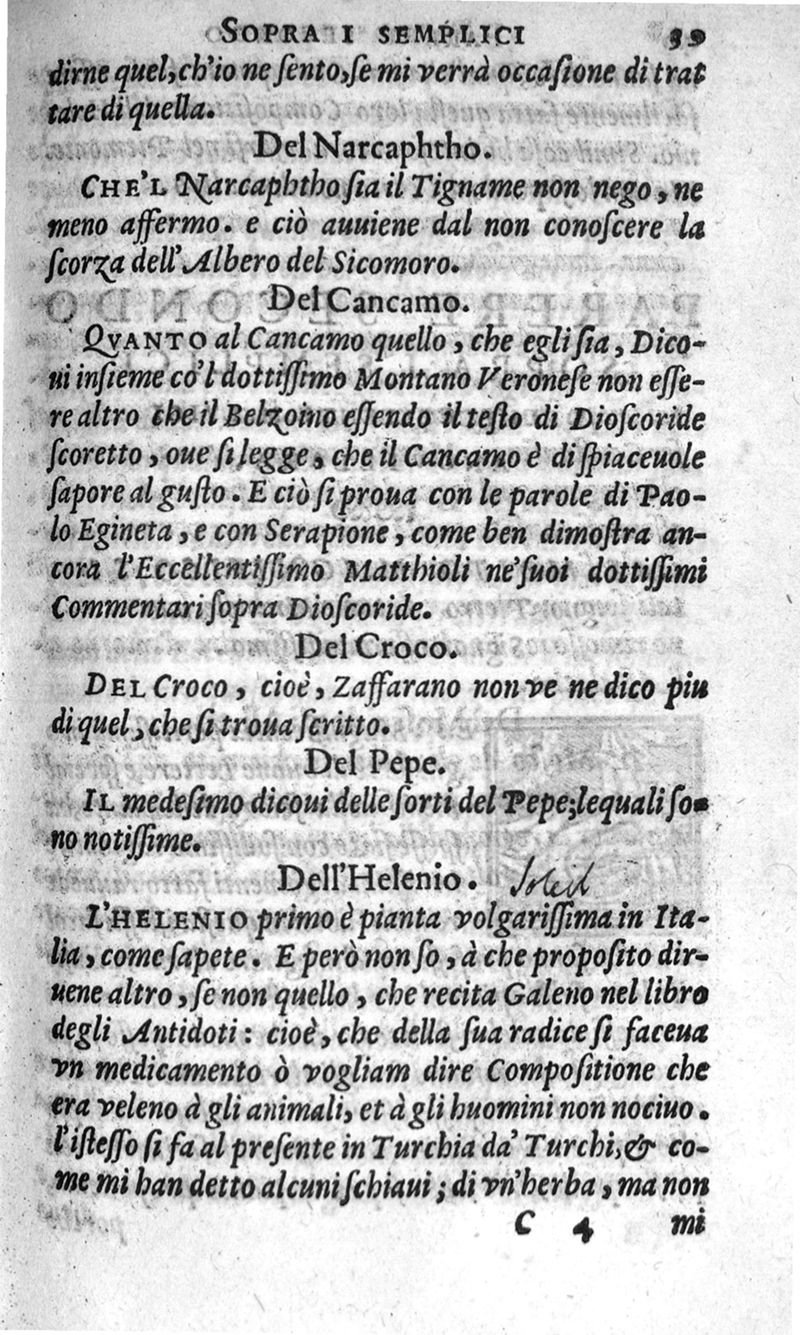 SOPRA I SEMPLICI 39
dirne quel, ch'io ne ſento, ſe mi verrà occaſione di trat
tare di quella.
Del Narcaphtho.
CHE'L Narcaphtho ſia il Tigname non nego, ne
meno affermo. e ciò auuiene dal non conoſcere la
ſcorza dell'Albero del Sicomoro.
Del Cancamo.
QVANTO al Cancamo quello, che egli ſia, Dico-
ui inſieme co'l dottiſſimo Montano Veroneſe non eſſe-
re altro che il Belzoino eſſendo il teſto di Dioſcoride
ſcoretto, oue ſi legge, che il Cancamo è di ſpiaceuole
ſapore al guſto. E ciò ſi proua con le parole di Pao-
lo Egineta, e con Serapione, come ben dimoſtra an-
cora l'Eccellentiſſimo Matthioli ne'ſuoi dottiſſimi
Commentari ſopra Dioſcoride.
Del Croco.
DEL Croco, cioè, Zaffarano non ve ne dico piu
di quel, che ſi troua ſcritto.
Del Pepe.
IL medeſimo dicoui delle ſorti del Pepe; lequali ſo-
no notiſſime.
Dell'Helenio.
L'HELENIO primo è pianta volgariſſima in Ita-
lia, come ſapete. E però non ſo, à che propoſito dir-
uene altro, ſe non quello, che recita Galeno nel libro
degli Antidoti: cioè, che della ſua radice ſi faceua
vn medicamento ò vogliam dire Compoſitione che
era veleno à gli animali, et à gli huomini non nociuo.
l'iſteſſo ſi fa al preſente in Turchia da' Turchi, & co-
me mi han detto alcuni ſchiaui; di vn'herba, ma non
C 4 mi